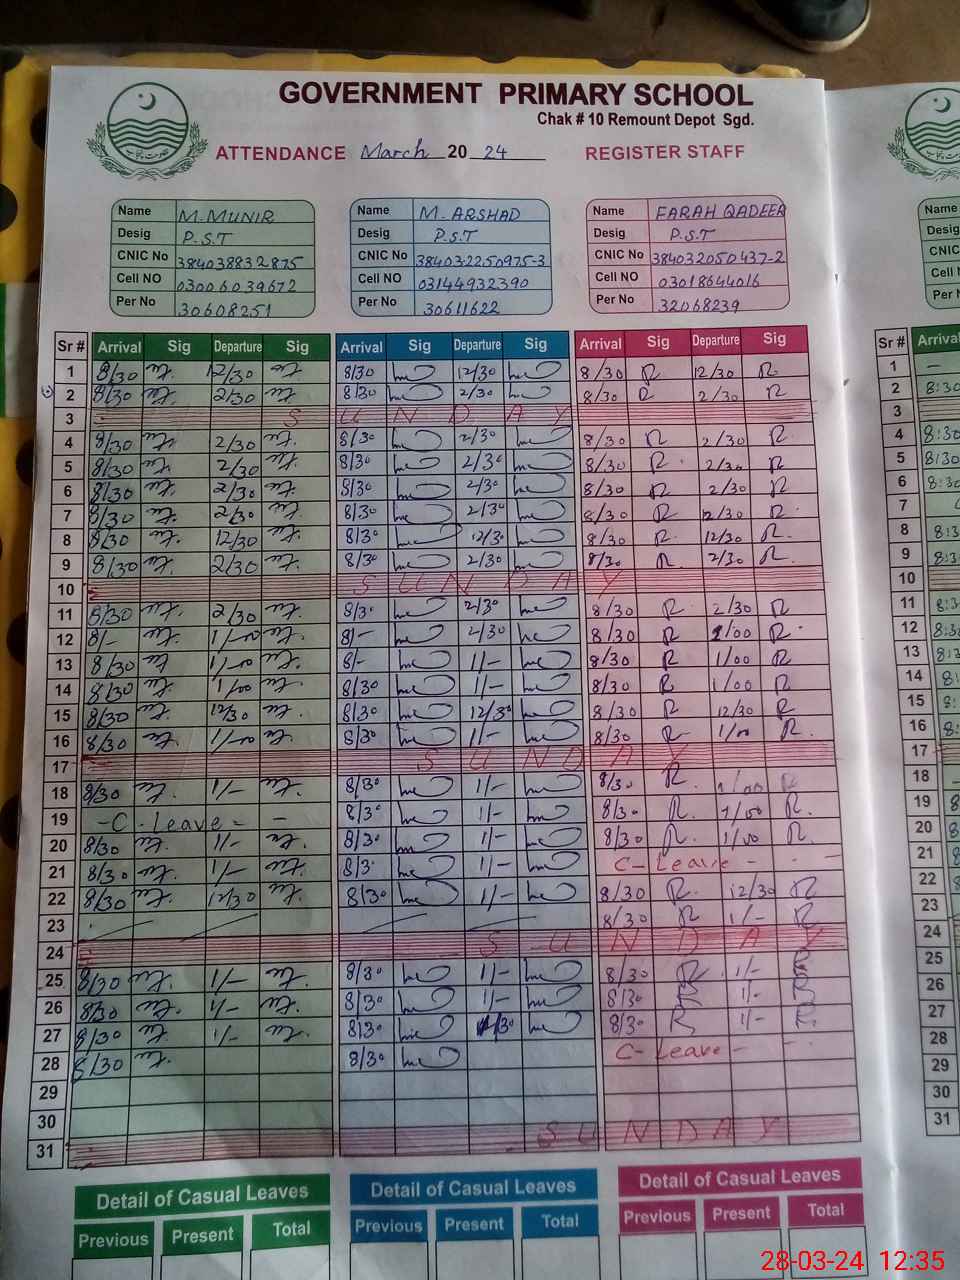 GOVERNMENT PRIMARY SCHOOL
Chak # 10 Remount Depot Sgd.
ATTENDANCE March 20 24 REGISTER STAFF
Name M. MUNIR Name M. ARSHAD Name FARAH QADEER
Desig P.S.T Desig P.S.T Desig P.S.T
CNIC No 384038832875 CNIC No 384032250975-3 CNIC No 384032050437-2
Cell NO 03006039672 Cell NO 03144932390 Cell NO 03018644016
Per No 30608251 Per No 30611622 Per No 32068239
Sr # Arrival Sig Departure Sig Arrival Sig Departure Sig Arrival Sig Departure Sig
1 8/30 12/30 8/30 12/30 8/30 R 12/30 R
2 8/30 2/30 8/30 2/30 8/30 R 2/30 R
3 SUNDAY
4 8/30 2/30 8/30 2/30 8/30 R 2/30 R
5 8/30 2/30 8/30 2/30 8/30 R 2/30 R
6 8/30 2/30 8/30 2/30 8/30 R 2/30 R
7 8/30 2/30 8/30 2/30 8/30 R 12/30 R
8 8/30 12/30 8/30 12/30 8/30 R 12/30 R
9 8/30 2/30 8/30 2/30 8/30 R 2/30 R
10 SUNDAY
11 8/30 2/30 8/30 2/30 8/30 R 2/30 R
12 8/- 1/00 8/- 2/30 8/30 R 1/00 R
13 8/30 1/00 8/- 1/- 8/30 R 1/00 R
14 8/30 1/00 8/30 1/- 8/30 R 1/00 R
15 8/30 12/30 8/30 12/30 8/30 R 12/30 R
16 8/30 1/00 8/30 1/- 8/30 R 1/00 R
17 SUNDAY
18 8/30 1/- 8/30 1/- 8/30 R 1/00 R
19 - C. Leave - - 8/30 1/- 8/30 R 1/00 R
20 8/30 1/- 8/30 1/- 8/30 R 1/00 R
21 8/30 1/- 8/30 1/- C-Leave - - -
22 8/30 12/30 8/30 1/- 8/30 R 12/30 R
23 8/30 R 1/- R
24 SUNDAY
25 8/30 1/- 8/30 1/- 8/30 R 1/- R
26 8/30 1/- 8/30 1/- 8/30 R 1/- R
27 8/30 1/- 8/30 8/30 R 1/- R
28 8/30 8/30 C-Leave - - -
29
30
31 SUNDAY
Detail of Casual Leaves Detail of Casual Leaves Detail of Casual Leaves
Previous Present Total Previous Present Total Previous Present Total
Name
Desig
CNIC No
Cell
Per N
Sr # Arrival
1 -
2 8:30
3
4 8:30
5 8:30
6 8:30
7
8
9
10
11
12
13
14
15
16
17
18
19
20
21
22
23
24
25
26
27
28
29
30
31
28-03-24 12:35